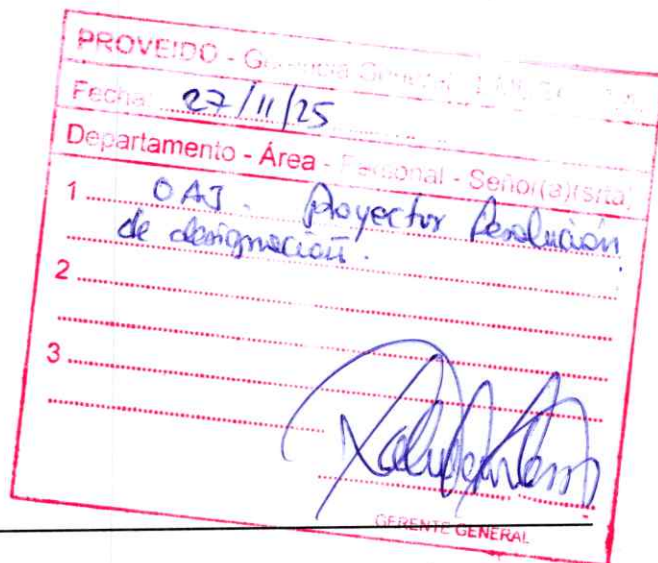 PROVEIDO - Gerencia General
Fecha: 27/11/25
Departamento - Área - Personal - Señor(a)(srta)
1 OAJ. Proyectar Resolución
de designación.
2
3
GERENTE GENERAL